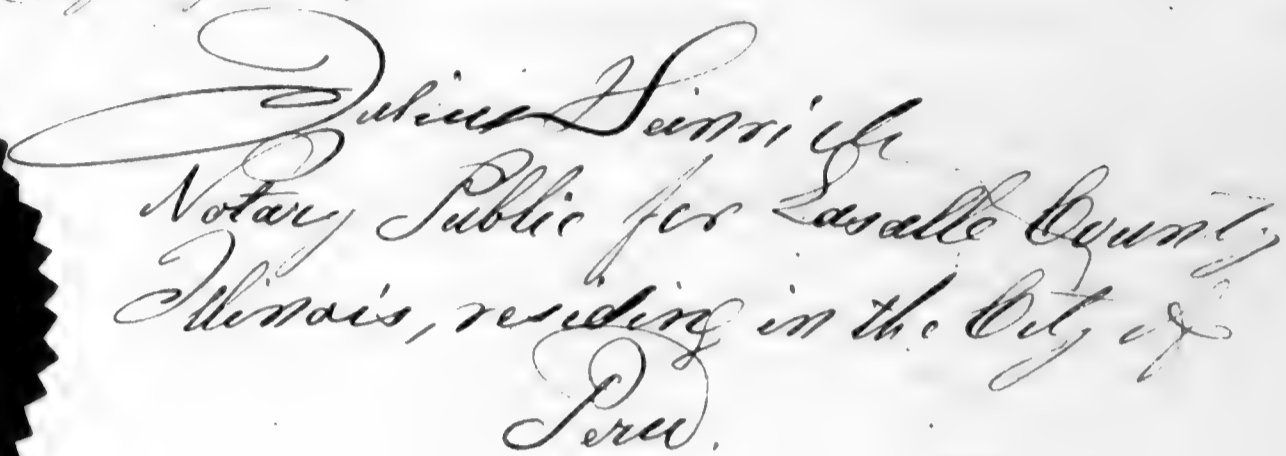 Julius Heinrich
Notary Public for Lasalle County
Illinois, residing in the City of
Peru.